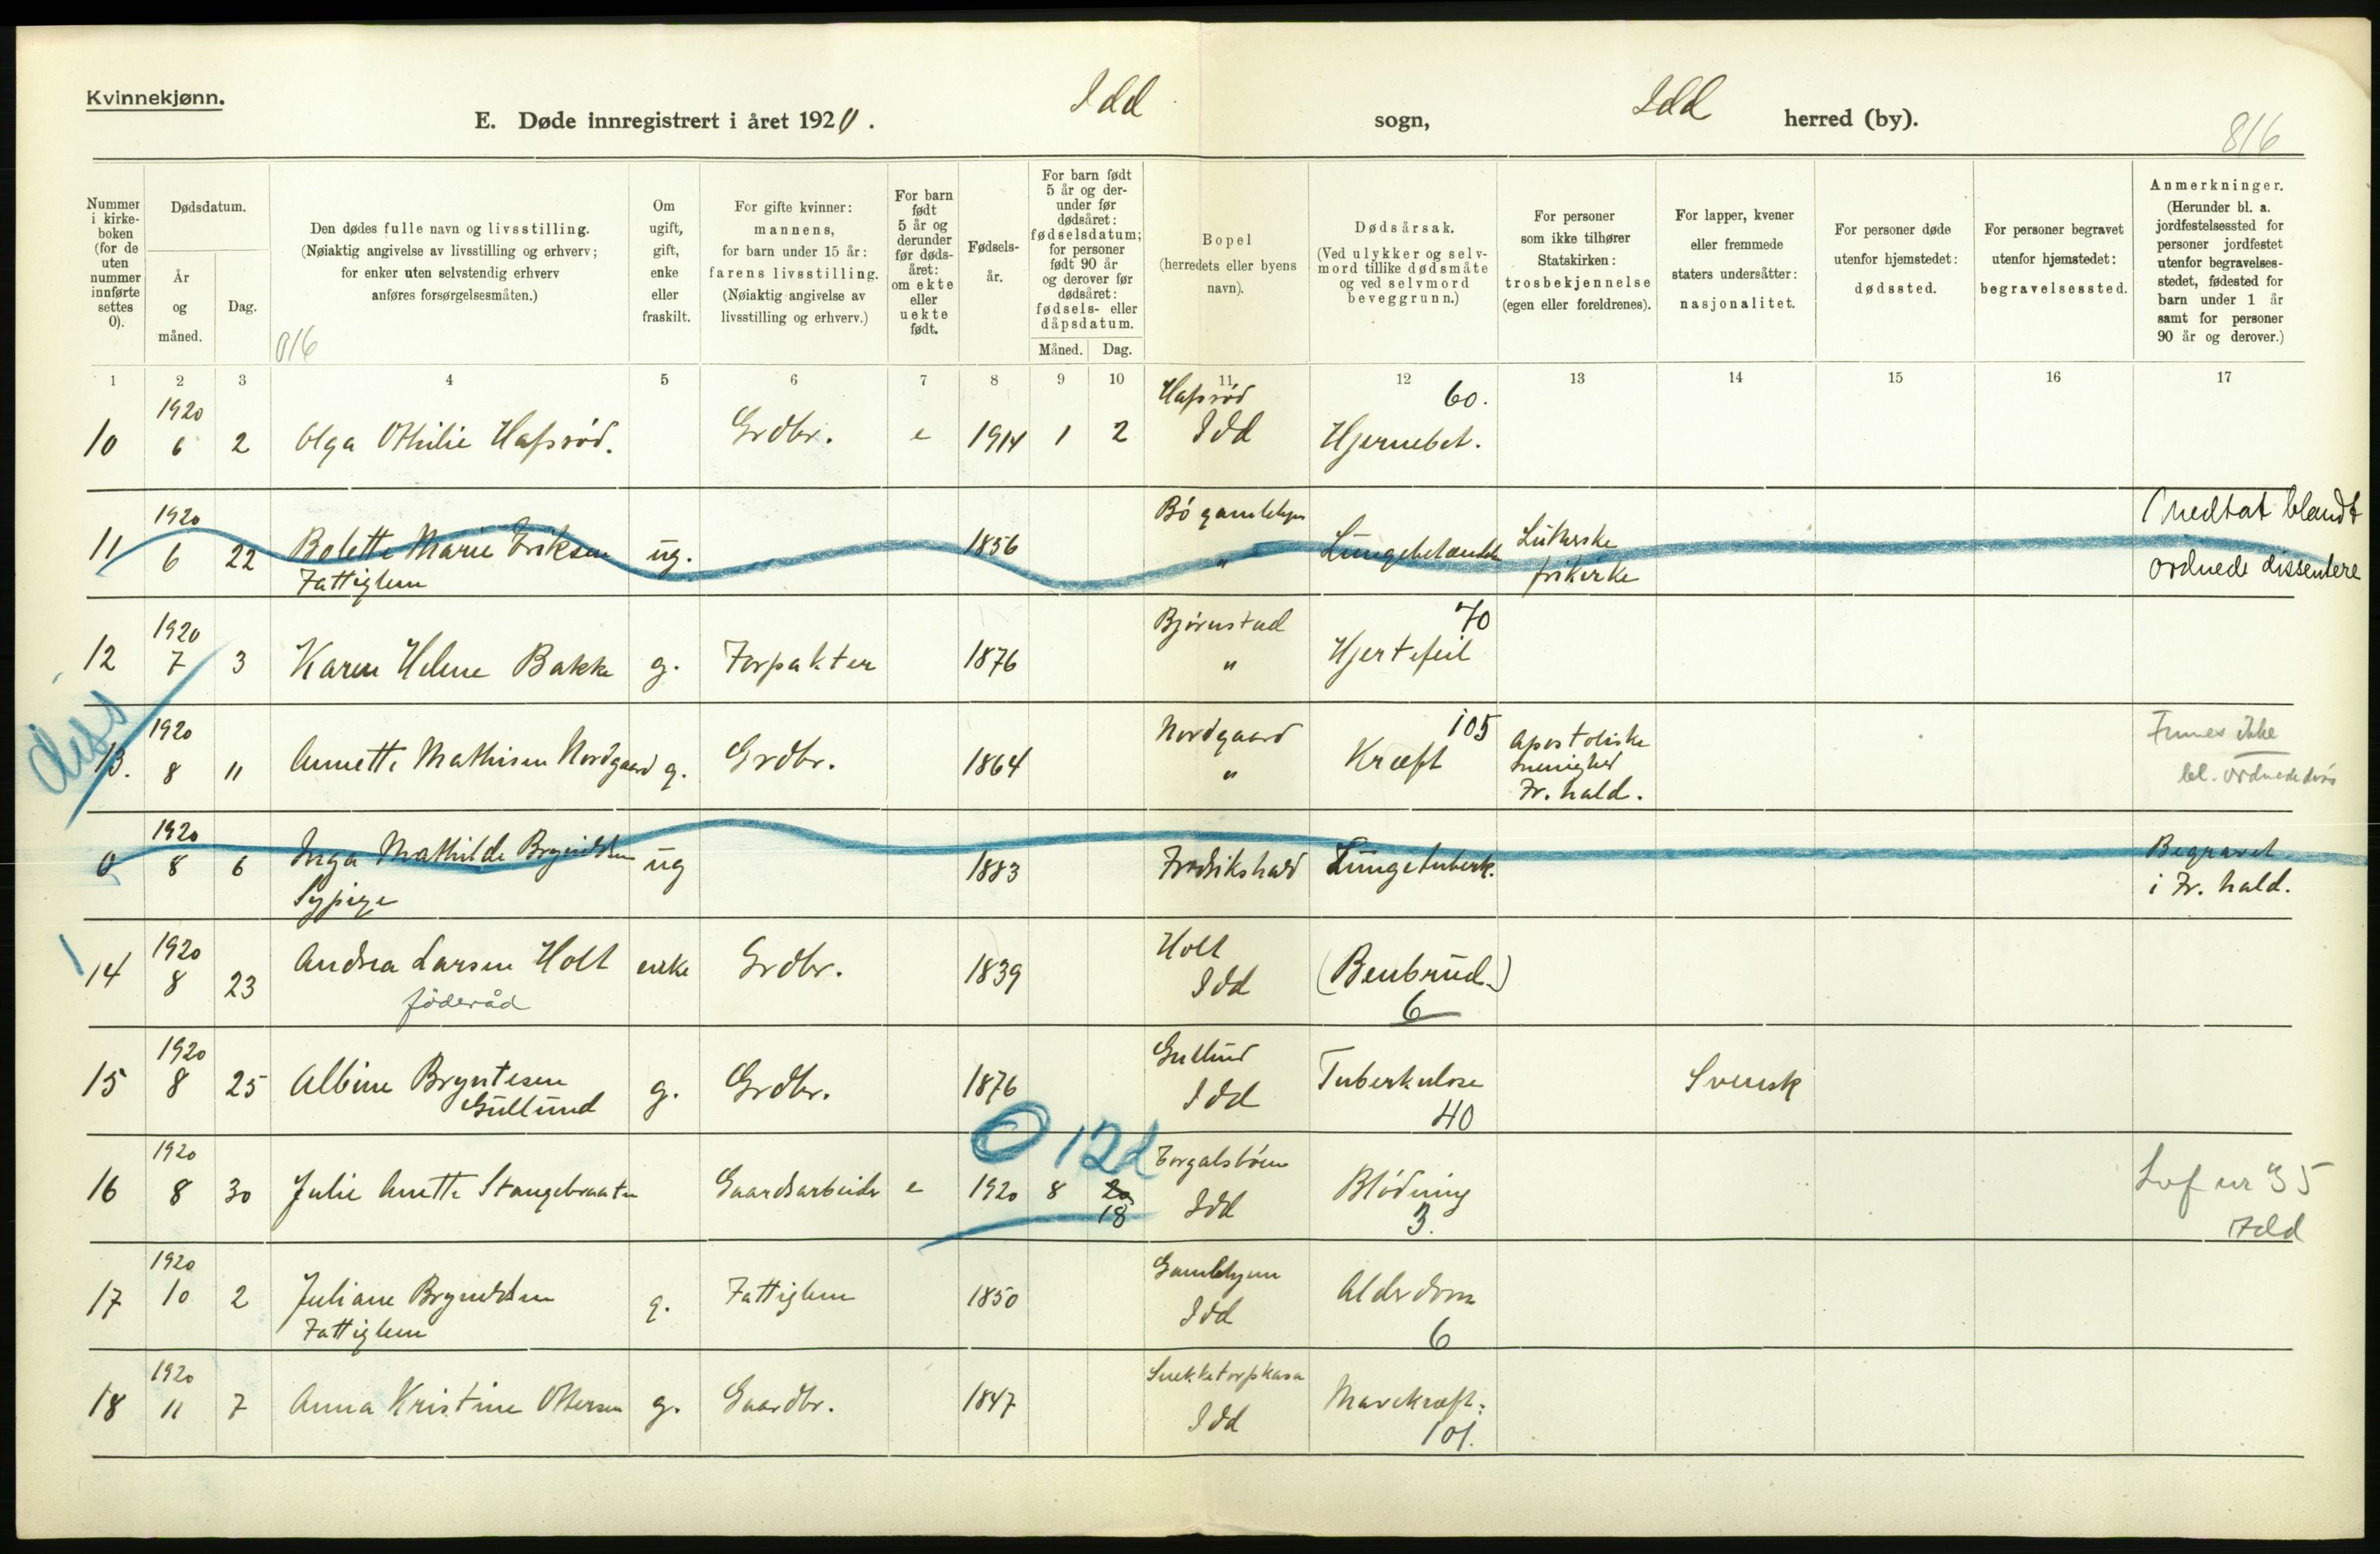 Kvinnekjønn.
E. Døde innregistrert i året 1920. Idd sogn, Idd herred (by).
816
Nummer i kirkeboken (for de uten nummer innførte settes 0).
Dødsdatum.
År og måned.
Dag.
Den dødes fulle navn og livsstilling.
(Nøiaktig angivelse av livsstilling og erhverv;
for enker uten selvstendig erhverv
anføres forsørgelsesmåten.)
016
Om ugift, gift, enke eller fraskilt.
For gifte kvinner: mannens, for barn under 15 år: farens livsstilling. (Nøiaktig angivelse av livsstilling og erhverv.)
For barn født 5 år og derunder før dødsåret: om ekte eller uekte født.
Fødselsår.
For barn født 5 år og derunder før dødsåret: fødselsdatum; for personer født 90 år og derover før dødsåret: fødsels- eller dåpsdatum.
Måned. Dag.
Bopel (herredets eller byens navn).
Dødsårsak. (Ved ulykker og selvmord tillike dødsmåte og ved selvmord beveggrunn.)
For personer som ikke tilhører Statskirken: trosbekjennelse (egen eller foreldrenes).
For lapper, kvener eller fremmede staters undersåtter: nasjonalitet.
For personer døde utenfor hjemstedet: dødssted.
For personer begravet utenfor hjemstedet: begravelsessted.
Anmerkninger. (Herunder bl. a. jordfestelsessted for personer jordfestet utenfor begravelsesstedet, fødested for barn under 1 år samt for personer 90 år og derover.)
1 2 3 4 5 6 7 8 9 10 11 12 13 14 15 16 17
1920 Hafsrød 60.
10 6 2 Olga Othilie Hafsrød. Grdbr. e 1914 1 2 Idd Hjernebet.
1920 Bø gamlehjem medtat blandt
11 6 22 Bolette Marie Eriksen ug. 1856 " Lungebetændelse Lutherske frikirke ordnede dissentere
Fattiglem
1920 Bjørnstad 70
12 7 3 Karen Helene Bakke g. Forpakter 1876 " Hjertefeil
diss
1920 Nordgaard 105 Apostoliske Finnes ikke
13. 8 11 Annette Mathisen Nordgaard g. Grdbr. 1864 " Kræft menighed Fr.hald. bl. ordnede diss
1920
0 8 6 Inga Mathilde Brynildsen ug 1883 Fredrikshald Lungetuberk. Begravet
Sypige i Fr.hald.
1920 Holt
14 8 23 Andrea Larsen Holt enke Grdbr. 1839 Idd (Benbrud.)
føderåd 6
1920 Gullund
15 8 25 Albine Bryntesen g. Grdbr. 1876 Idd Tuberkulose Svensk
Gullund 40
0 12d
1920
16 8 30 Julie Anette Stangebraaten Gaardsarbeider e 1920 8 20 18 Idd Blødning 3. Lof nr 35
Idd
1920 Gamlehjem
17 10 2 Juliane Brynildsen g. Fattiglem 1850 Idd Alderdom
Fattiglem 6
1920
18 11 7 Anna Kristine Ottersen g. Gaardbr. 1847 Idd Mavekræft.
101.